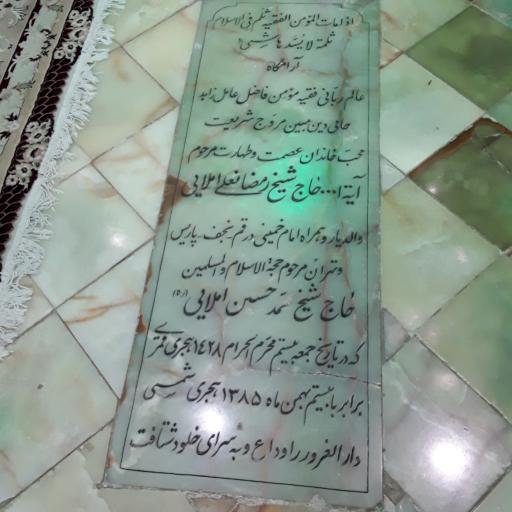 اذا مات المؤمن الفقیه ثلم فی الاسلام
ثلمة لا یسدها شیئ
آرامگاه
عالم ربانی فقیه مؤمن فاضل عامل زاهد
حامی دین مبین مروج شریعت
محب خاندان عصمت و طهارت مرحوم
آیة ا... حاج شیخ رمضانعلی املایی
والد یار و همراه امام خمینی در قم-نجف-پاریس
و تهران مرحوم حجة الاسلام والمسلمین
حاج شیخ محمد حسین املایی (ره)
که در تاریخ جمعه بیستم محرم الحرام ۱۴۲۸ هجری قمری
برابر با بیستم بهمن ماه ۱۳۸۵ هجری شمسی
دار الغرور را وداع و به سرای خلود شتافت